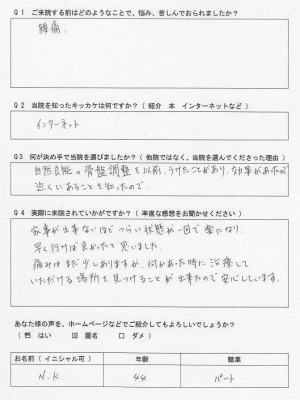 Q1 ご来院する前はどのようなことで、悩み、苦しんでおられましたか？
腰痛。
Q2 当院を知ったキッカケは何ですか？（紹介 本 インターネットなど）
インターネット
Q3 何が決め手で当院を選びましたか？（他院ではなく、当院を選んでくださった理由）
自然良能の骨盤調整を以前、うけたことがあり、効果があったので
近くにあることを知ったので。
Q4 実際に来院されていかがですか？（率直な感想をお聞かせください）
家事が出来ないほどつらい状態が一回で楽になり、
早く行けば良かったと思いました。
痛みはまだ少しありますが、何かあった時に治療して
いただける場所を見つけることが出来たので安心しています。
あなた様の声を、ホームページなどでご紹介してもよろしいでしょうか？
（ はい ☑ 匿名 □ ダメ ）
お名前（イニシャル可） 年齢 職業
N.K 44 パート